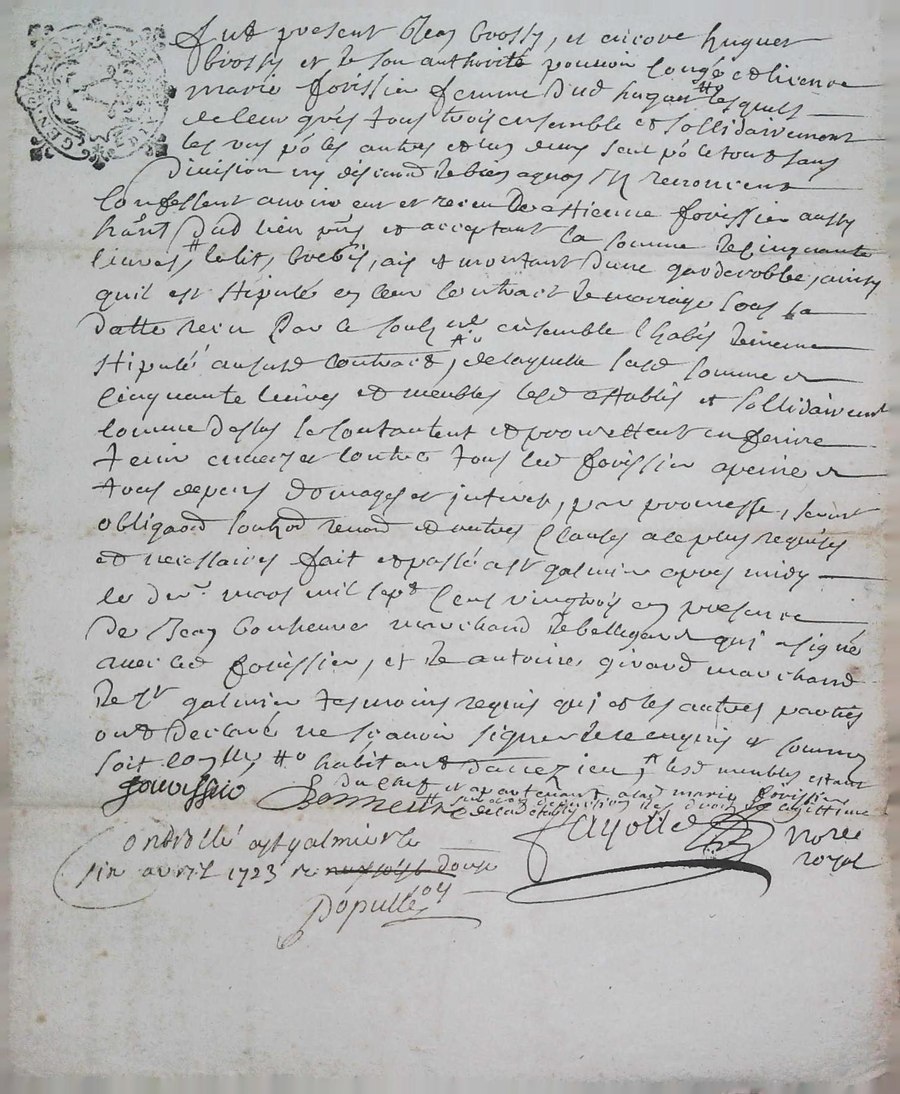 fut present Jean brossy, et encore huguet
brossy et de son authorité pouvoir congé et licence
marie forissier femme dud hugue lesquels
de leur gré tous trois ensemble et sollidairement
les uns po les autres et un deux seul po le tout sans
division ny de biens a quoy ils renoncent
confessent avoir eut et receu de estienne forissier aussy
hant dud lieu pnt et acceptant la somme de cinquante
livres, le lit, brebis, ais et montant dune garderobbe, ainsy
quil est stipulé en leur contract de mariage sous sa
datte receu par le soubz né ensemble lhabit
stipulé audit contract, de laquelle susd somme de
cinquante livres et meubles lesd establis et sollidairement
comme dessus se contantent et promettent en faire
tenir envers et contre tous led forissier a peine de
tous depens domages et interets, par promesse, serment
obligaon soubzon renon et autres clauses a ce plus requises
et necessaires fait et passé a st galmier apres midy
le der mars mil sept cens vingtrois en presence
de Jean bonheure marchand de bellegarde qui a signé
avec led forissier, et de antoine girard marchand
de st galmier tesmoins requis qui et les autres parties
ont declaré ne scavoir signer de ce enquis et sommés
soit collé, habitant davezieu, lesd meubles estant
du chef et apartenant a lad marie forissier
forissier
fayolle no.re
royal
controllé a st galmier le
six avril 1723 r douze
Populle
GEN